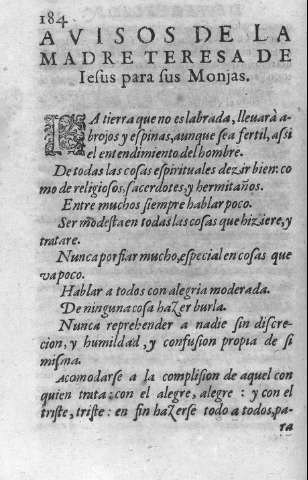 184
AVISOS DE LA
MADRE TERESA DE
Iesus para sus Monjas.
LA tierra que no es labrada, lleuarà a-
brojos y espinas, aunque sea fertil, assi
el entendimiento del hombre.
De todas las cosas espirituales dezir bien: co
mo de religiosos, sacerdotes, y hermitaños.
Entre muchos siempre hablar poco.
Ser modesta en todas las cosas que hiziere, y
tratare.
Nunca porfiar mucho, especial en cosas que
va poco.
Hablar a todos con alegria moderada.
De ninguna cosa hazer burla.
Nunca reprehender a nadie sin discre-
cion, y humildad, y confusion propia de si
misma.
Acomodarse a la complision de aquel con
quien trata: con el alegre, alegre: y con el
triste, triste: en fin hazerse todo a todos, pa-
ra